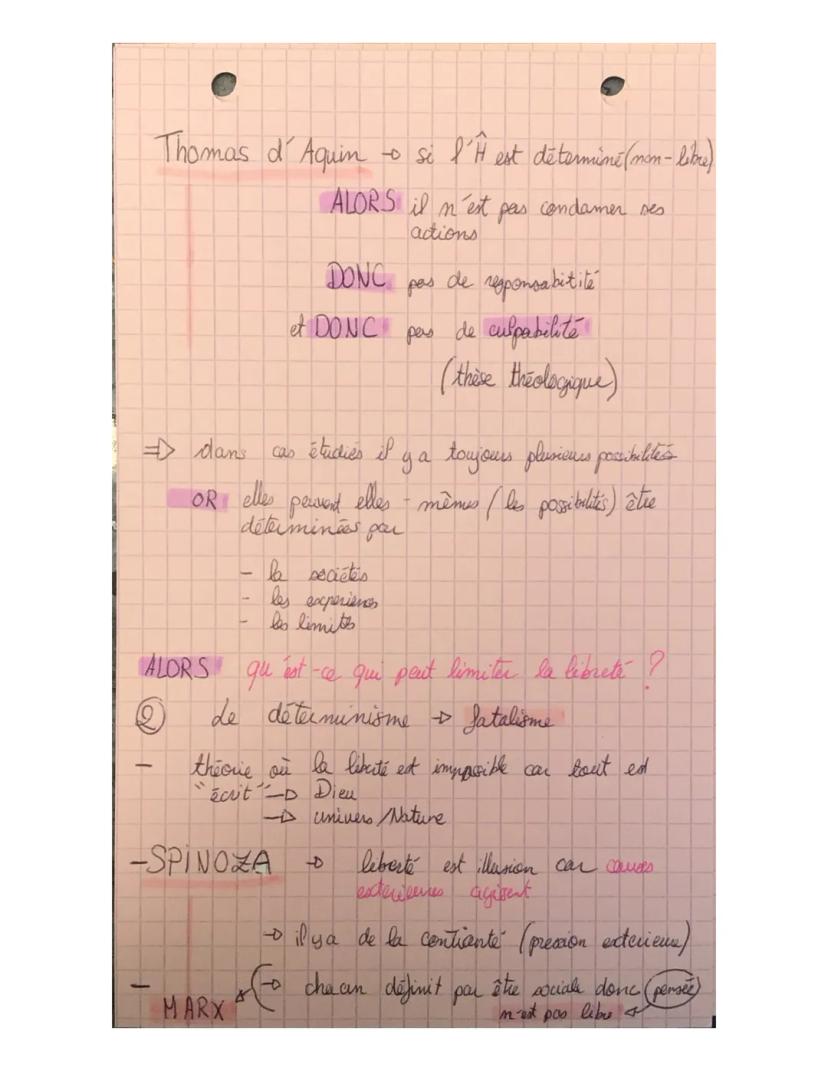 Thomas d'Aquin → si l'Ĥ est déterminé (non-libre)
ALORS il n'est pas condamer ses
actions
DONC pas de responsabitité
et DONC pas de culpabilité
(thèse théologique)
⇒ dans cas étudiés il y a toujours plusieurs possibilités
OR elles peuvent elles-mêmes (les possibilités) être
déterminées par
- la sociétés
- les experiences
- les limites
ALORS qu'est-ce qui peut limiter la libreté ?
② Le déterminisme → fatalisme
- théorie où la liberté est impossible car tout est
"écrit" → Dieu
→ univers/Nature
- SPINOZA → liberté est illusion car causes
exterieures agissent
→ il y a de la contrainte (pression exterieure)
- MARX → chacun définit par être sociale donc pensée
n'est pas libre